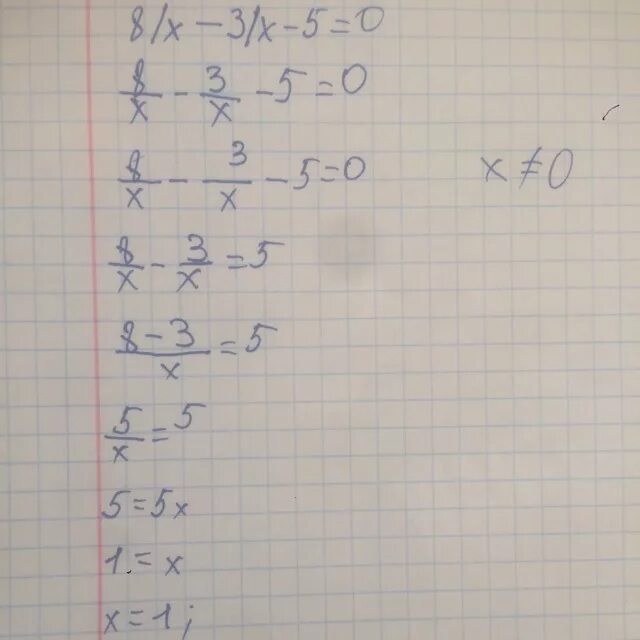 8/x - 3/x - 5 = 0
8/x - 3/x - 5 = 0
8/x - 3/x - 5 = 0 x ≠ 0
8/x - 3/x = 5
(8 - 3)/x = 5
5/x = 5
5 = 5x
1 = x
x = 1;